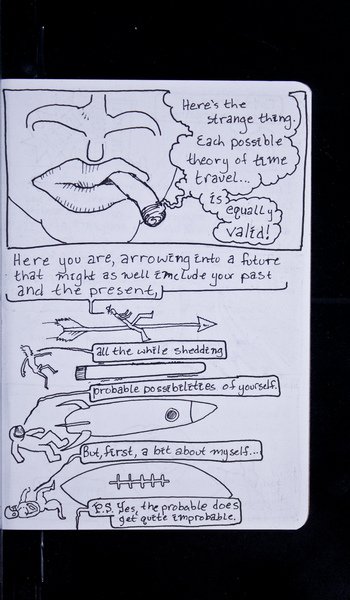 Here's the
strange thing.
Each possible
theory of time
travel...
is
equally
valid!
Here you are, arrowing into a future
that might as well include your past
and the present,
all the while shedding
probable possibilities of yourself.
But, first, a bit about myself...
P.S. Yes, the probable does
get quite improbable.